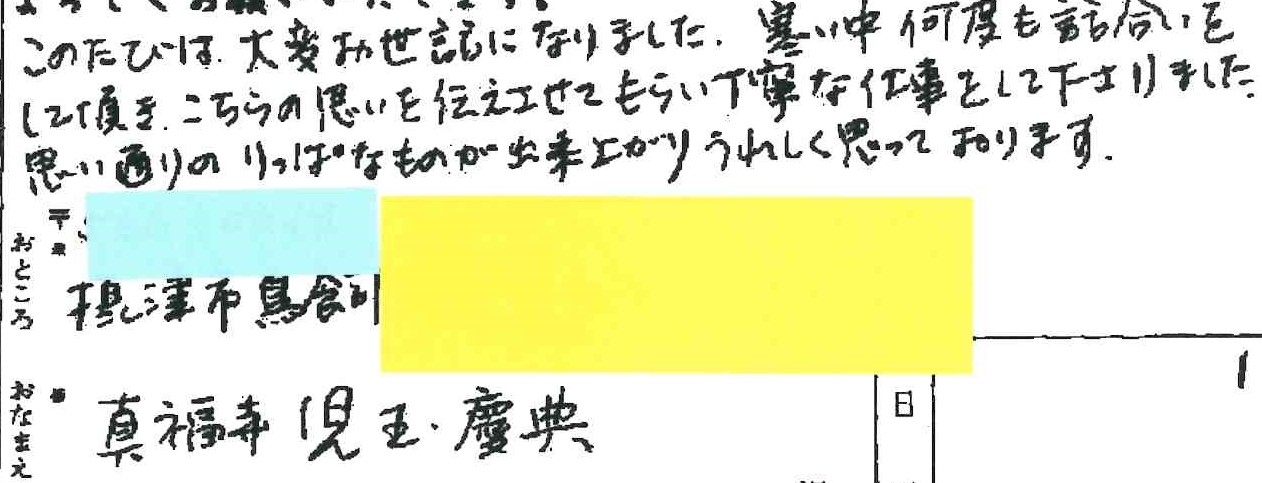 このたびは、大変お世話になりました。寒い中何度も話合いを
して頂き、こちらの思いを伝えさせてもらい丁寧な仕事をして下さりました
思い通りのりっぱなものが出来上がりうれしく思っております。
〒
おところ
摂津市鳥飼
おなまえ
真福寺 児玉・慶典
日